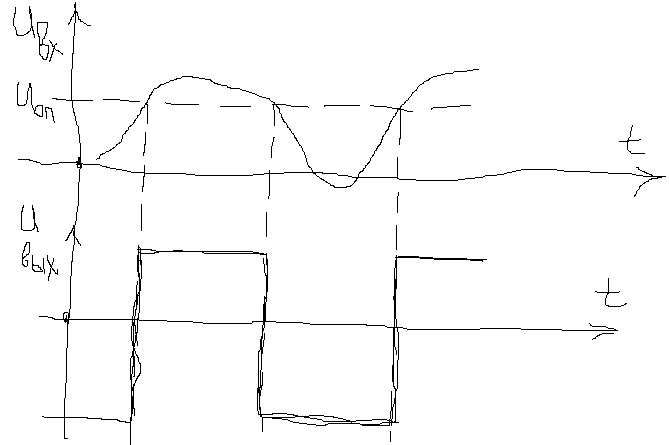 Uвх
Uоп
t
U
вых
t